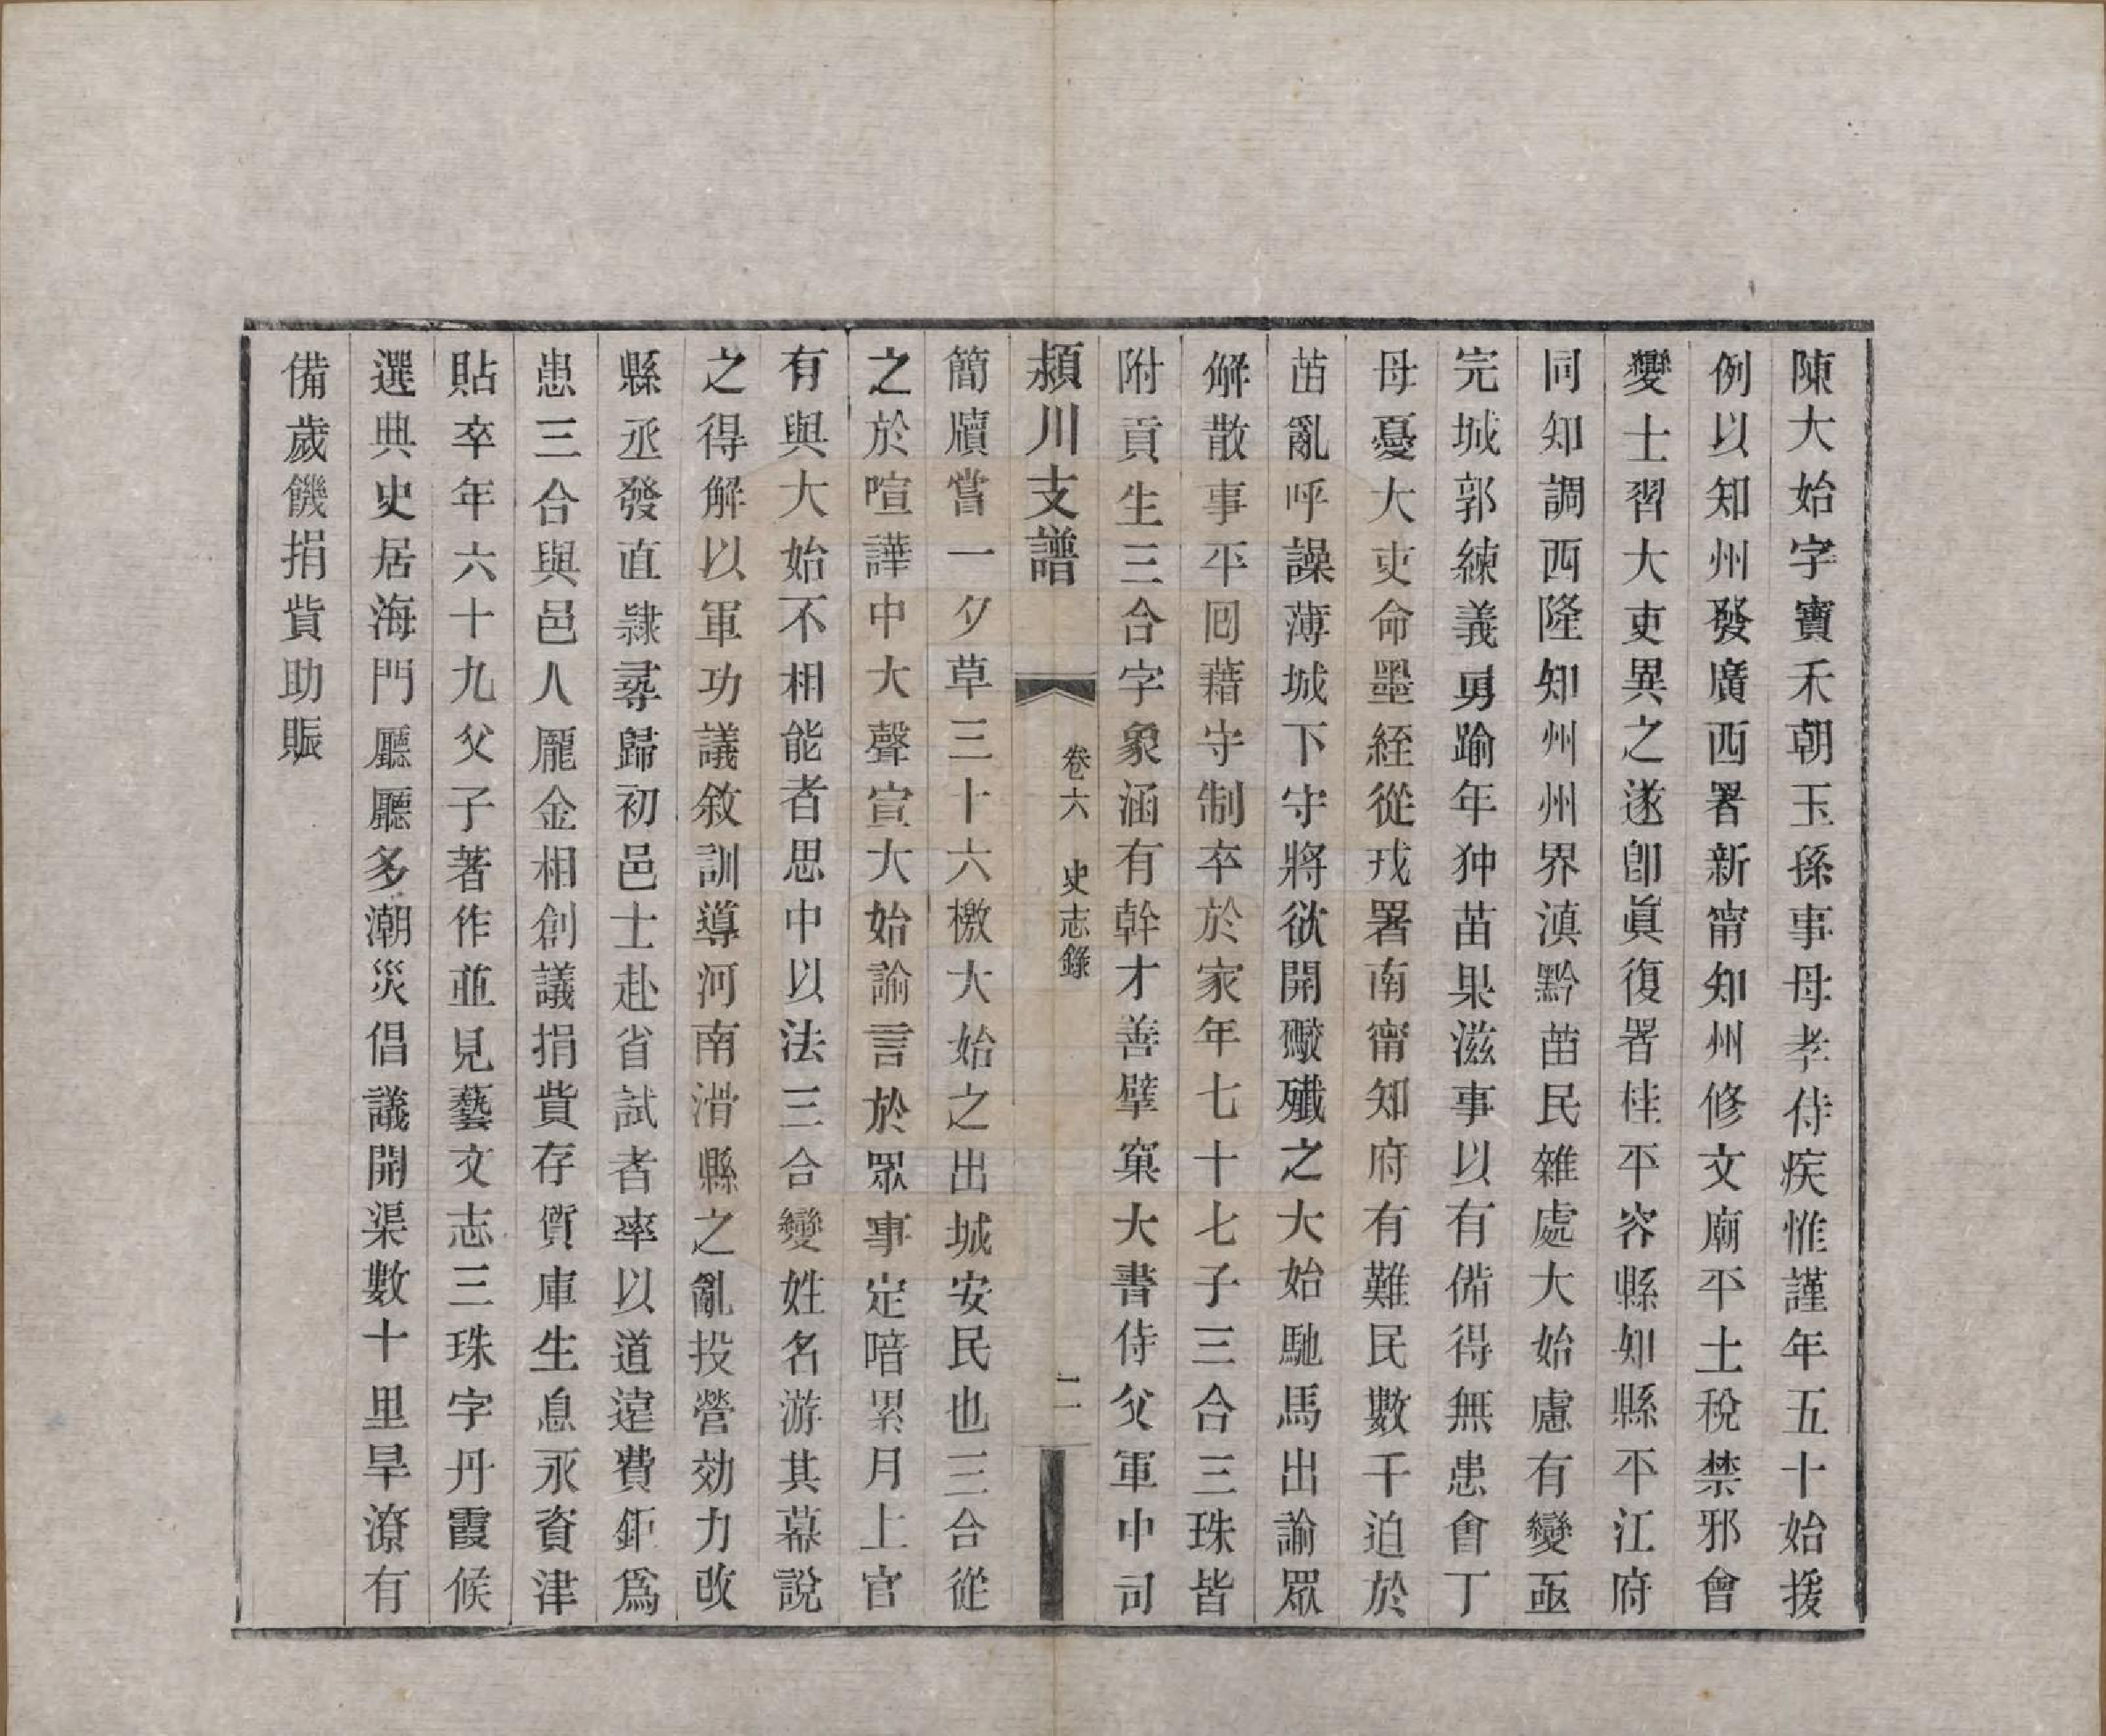 陳大始字寶禾朝玉孫事母孝侍疾惟謹年五十始援
例以知州發廣西署新甯知州修文廟平土稅禁邪會
變士習大吏異之遂卽眞復署桂平容縣知縣平江府
同知調西隆知州州界滇黔苗民雜處大始慮有變亟
完城郭練義勇踰年狆苗果滋事以有備得無患會丁
母憂大吏命墨絰從戎署南甯知府有難民數千迫於
苗亂呼譟薄城下守將欲開礮殲之大始馳馬出諭眾
解散事平回藉守制卒於家年七十七子三合三珠皆
附貢生三合字象涵有幹才善擘窠大書侍父軍中司
潁川支譜
卷六 史志錄
二
簡牘嘗一夕草三十六檄大始之出城安民也三合從
之於喧譁中大聲宣大始諭言於眾事定喑累月上官
有與大始不相能者思中以法三合變姓名游其幕說
之得解以軍功議敘訓導河南滑縣之亂投營効力改
縣丞發直隸尋歸初邑士赴省試者率以道遠費鉅爲
患三合與邑人龐金相創議捐貲存質庫生息永資津
貼卒年六十九父子著作並見藝文志三珠字丹霞候
選典史居海門廳廳多潮災倡議開渠數十里旱潦有
備歲饑捐貲助賑